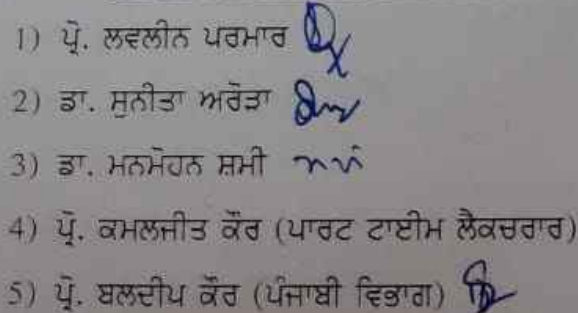 1) ਪ੍ਰੋ. ਲਵਲੀਨ ਪਰਮਾਰ
2) ਡਾ. ਸੁਨੀਤਾ ਅਰੋੜਾ
3) ਡਾ. ਮਨਮੋਹਨ ਸ਼ਮੀ
4) ਪ੍ਰੋ. ਕਮਲਜੀਤ ਕੌਰ (ਪਾਰਟ ਟਾਈਮ ਲੈਕਚਰਾਰ)
5) ਪ੍ਰੋ. ਬਲਦੀਪ ਕੌਰ (ਪੰਜਾਬੀ ਵਿਭਾਗ)